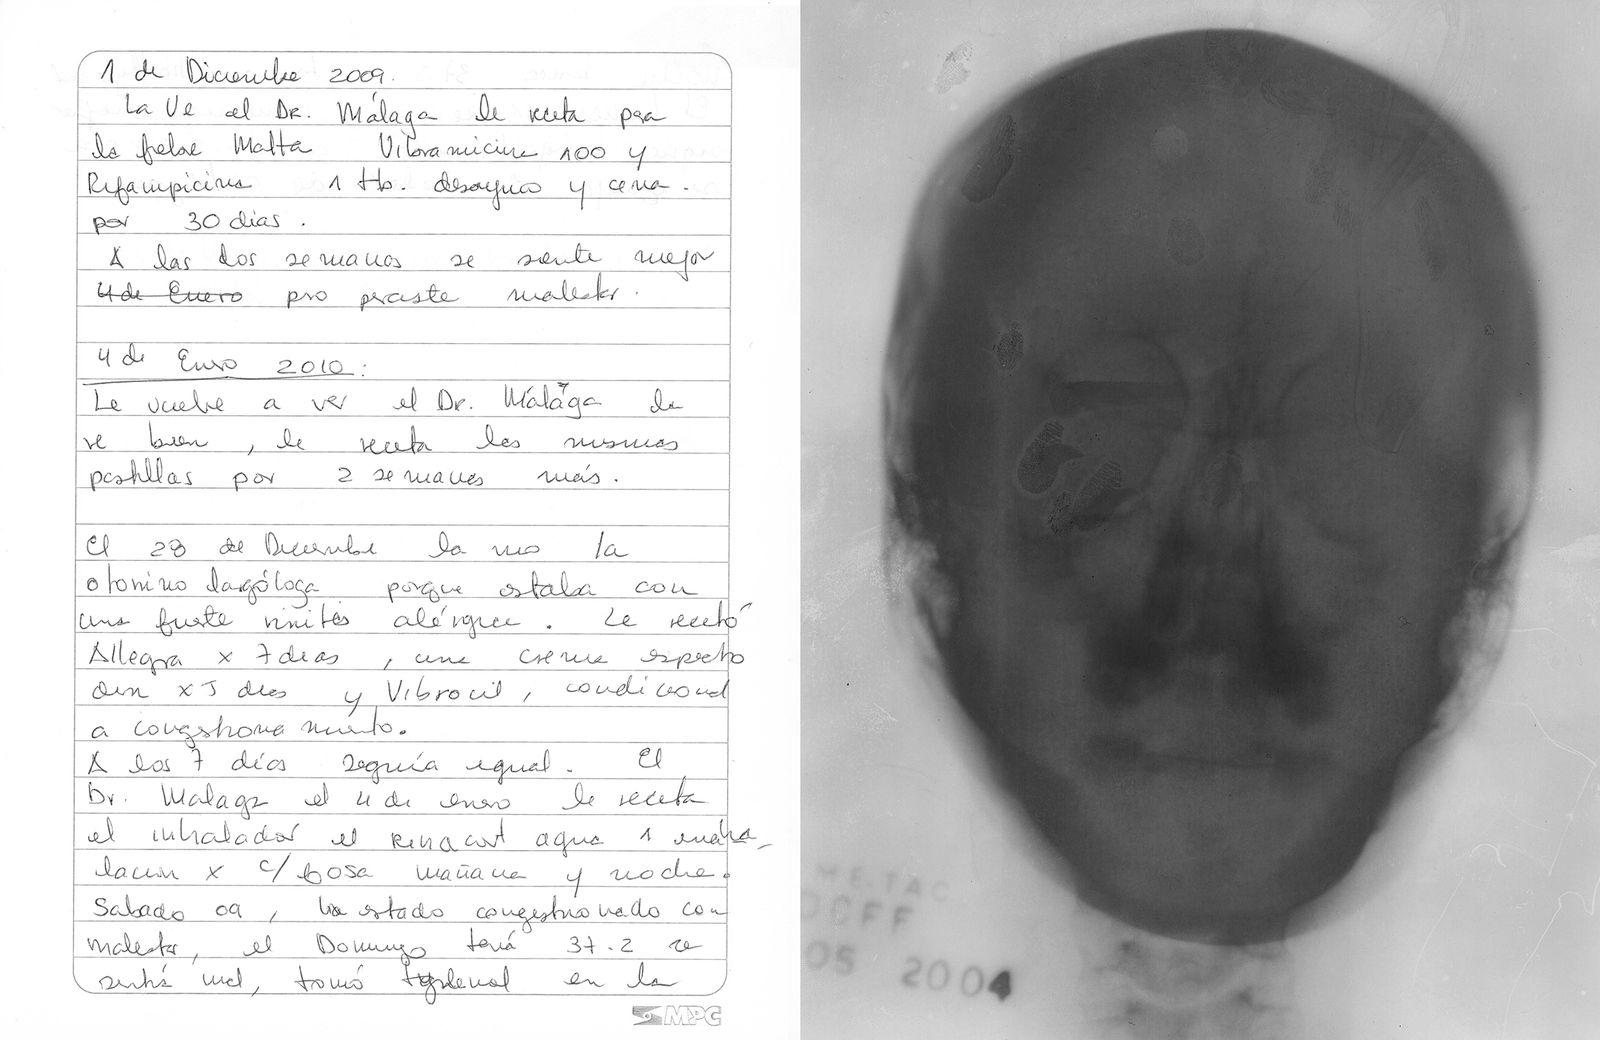 1 de Diciembre 2009.
La Ve el Dr. Málaga le receta para
la fiebre Malta Vibramicina 100 y
Rifampicina 1 tb. desayuno y cena.
por 30 dias.
A las dos semanas se siente mejor
4 de Enero pero persiste malestar.
4 de Enero 2010:
Le vuelve a ver el Dr. Málaga la
ve bien, le receta las mismas
pastillas por 2 semanas más.
El 28 de Diciembre la vio la
otorrino laringóloga porque estaba con
una fuerte rinitis alérgica. Le recetó
Allegra x 7 dias, una crema
x 5 dias y Vibrocil, condicional
a congestionamiento.
A los 7 días seguía igual. El
Dr. Malaga el 4 de enero le receta
el inhalador el Rinacort agua 1 inha_
lacion x c/fosa mañana y noche.
Sabado 09, ha estado congestionado con
malestar, el Domingo tenía 37.2 se
sentía mal, tomó en la
MPC
ME.TAC
OFF
05 2004